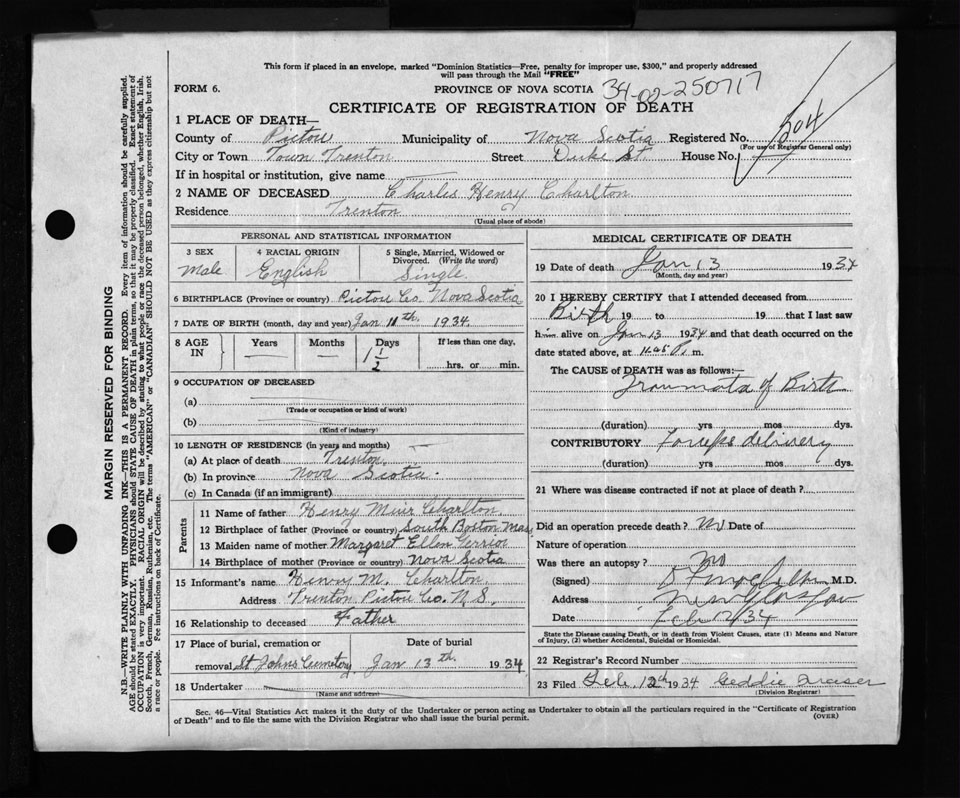 This form if placed in an envelope, marked "Dominion Statistics—Free, penalty for improper use, $300," and properly addressed
will pass through the Mail "FREE"
FORM 6.
PROVINCE OF NOVA SCOTIA 34-02-250717
CERTIFICATE OF REGISTRATION OF DEATH
1 PLACE OF DEATH—
County of Pictou Municipality of Nova Scotia Registered No. 504
(For use of Registrar General only)
City or Town Town Trenton Street Duke St. House No.
If in hospital or institution, give name
2 NAME OF DECEASED Charles Henry Charlton
Residence Trenton
(Usual place of abode)
PERSONAL AND STATISTICAL INFORMATION
3 SEX 4 RACIAL ORIGIN 5 Single, Married, Widowed or
Divorced. (Write the word)
Male English Single.
6 BIRTHPLACE (Province or country) Pictou Co. Nova Scotia
7 DATE OF BIRTH (month, day and year) Jan 11th. 1934.
8 AGE IN Years Months Days If less than one day,
1 1/2 hrs. or min.
9 OCCUPATION OF DECEASED
(a)
(Trade or occupation or kind of work)
(b)
(Kind of industry)
10 LENGTH OF RESIDENCE (in years and months)
(a) At place of death Trenton
(b) In province Nova Scotia.
(c) In Canada (if an immigrant)
Parents
11 Name of father Henry Muir Charlton
12 Birthplace of father (Province or country) South Boston Mas
13 Maiden name of mother Margaret Ellen
14 Birthplace of mother (Province or country) Nova Scotia
15 Informant's name Henry M. Charlton.
Address Trenton Pictou Co. N.S.
16 Relationship to deceased Father
17 Place of burial, cremation or Date of burial
removal St Johns Cemetery Jan 13th. 1934
18 Undertaker
(Name and address)
MEDICAL CERTIFICATE OF DEATH
19 Date of death Jan 13 1934
(Month, day and year)
20 I HEREBY CERTIFY that I attended deceased from
Birth 19 to 19 that I last saw
him alive on Jan 13 1934 and that death occurred on the
date stated above, at 11.45 P. m.
The CAUSE of DEATH was as follows:—
Traumata of Birth
(duration) yrs mos dys.
CONTRIBUTORY Forceps delivery
(duration) yrs mos dys.
21 Where was disease contracted if not at place of death?
Did an operation precede death? no Date of
Nature of operation
Was there an autopsy? no
(Signed) M.D.
Address New Glasgow
Date Feb 12/34
State the Disease causing Death, or in death from Violent Causes, state (1) Means and Nature
of Injury, (2) whether Accidental, Suicidal or Homicidal.
22 Registrar's Record Number
23 Filed Feb. 12th 1934 Geddie Fraser
(Division Registrar)
Sec. 46—Vital Statistics Act makes it the duty of the Undertaker or person acting as Undertaker to obtain all the particulars required in the "Certificate of Registration
of Death" and to file the same with the Division Registrar who shall issue the burial permit.
(OVER)
MARGIN RESERVED FOR BINDING
N.B.—WRITE PLAINLY WITH UNFADING INK—THIS IS A PERMANENT RECORD. Every item of information should be carefully supplied.
AGE should be stated EXACTLY. PHYSICIANS should STATE CAUSE OF DEATH in plain terms, so that it may be properly classified. Exact statement of
OCCUPATION is very important. RACIAL ORIGIN will be described by stating to what people or race the deceased person belonged, whether English, Irish,
Scotch, French, German, Russian, Ruthenian, etc. The terms "AMERICAN" or "CANADIAN" SHOULD NOT BE USED as they express citizenship but not
a race or people. See instructions on back of Certificate.